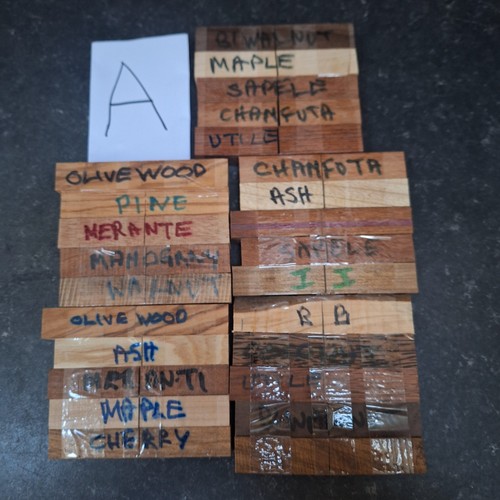 A
B WALNUT
MAPLE
SAPELE
CHANFUTA
UTILE
OLIVE WOOD
PINE
MERANTE
MAHOGANY
WALNUT
CHANFUTA
ASH
SAPELE
I I
OLIVE WOOD
ASH
MERANTI
MAPLE
CHERRY
B B